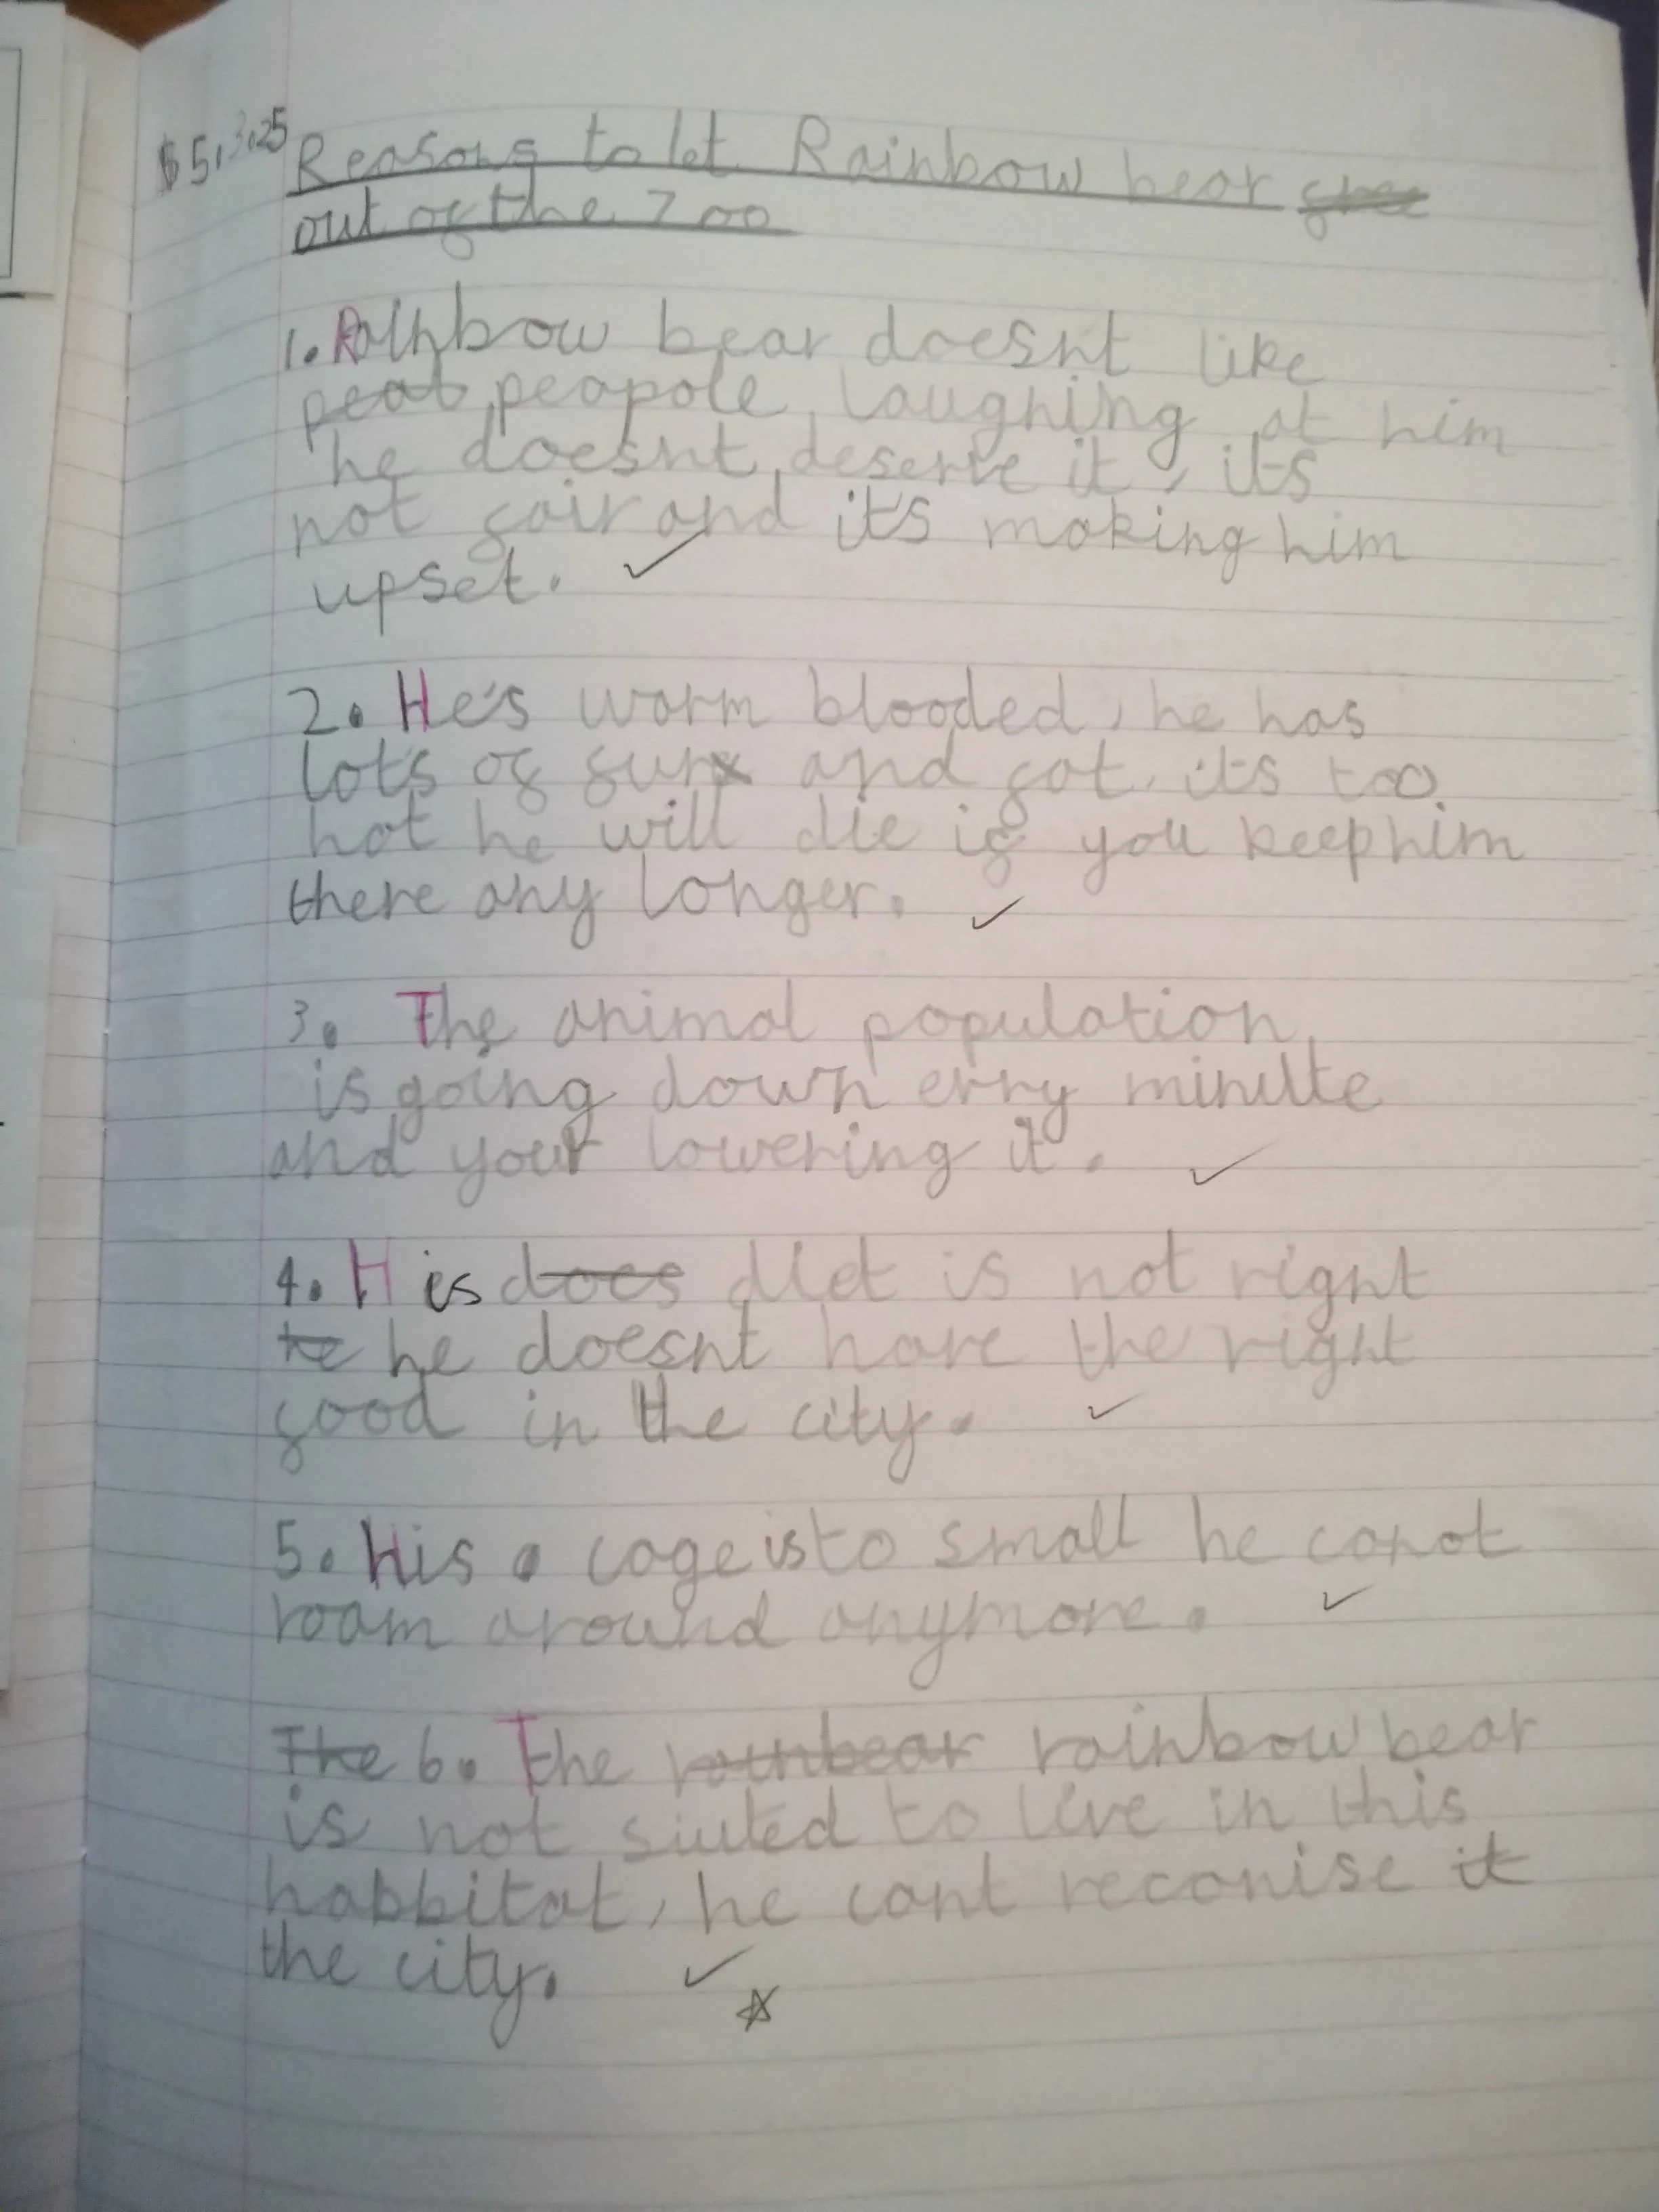 5.3.25 Reasons to let Rainbow bear free
out of the zoo
1. Rainbow bear doesn't like
peat peapole laughing at him
he doesnt deserve it, its
not fair and it's making him
upset. ✓
2. He's warm blooded, he has
lots of furx and fat. its too
hot he will die if you keep him
there any longer. ✓
3. The animal population
is going down evry minute
and your lowering it. ✓
4. His does diet is not right
he he doesnt have the right
food in the city. ✓
5. His cage is to small he canot
roam around anymore. ✓
The 6. The rainbear rainbow bear
is not siuted to live in this
habbitat, he cant reconise it
the city. ✓